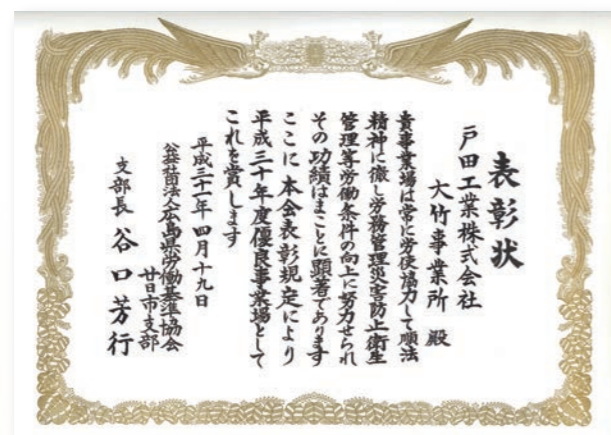 表彰状
戸田工業株式会社
大竹事業所 殿
貴事業場は常に労使協力して順法
精神に徹し労務管理災害防止衛生
管理等労働条件の向上に努力せられ
その功績はまことに顕著であります
ここに本会表彰規定により
平成三十年度優良事業場として
これを賞します
平成三十一年四月十九日
公益社団法人広島県労働基準協会
廿日市支部
支部長 谷口芳行